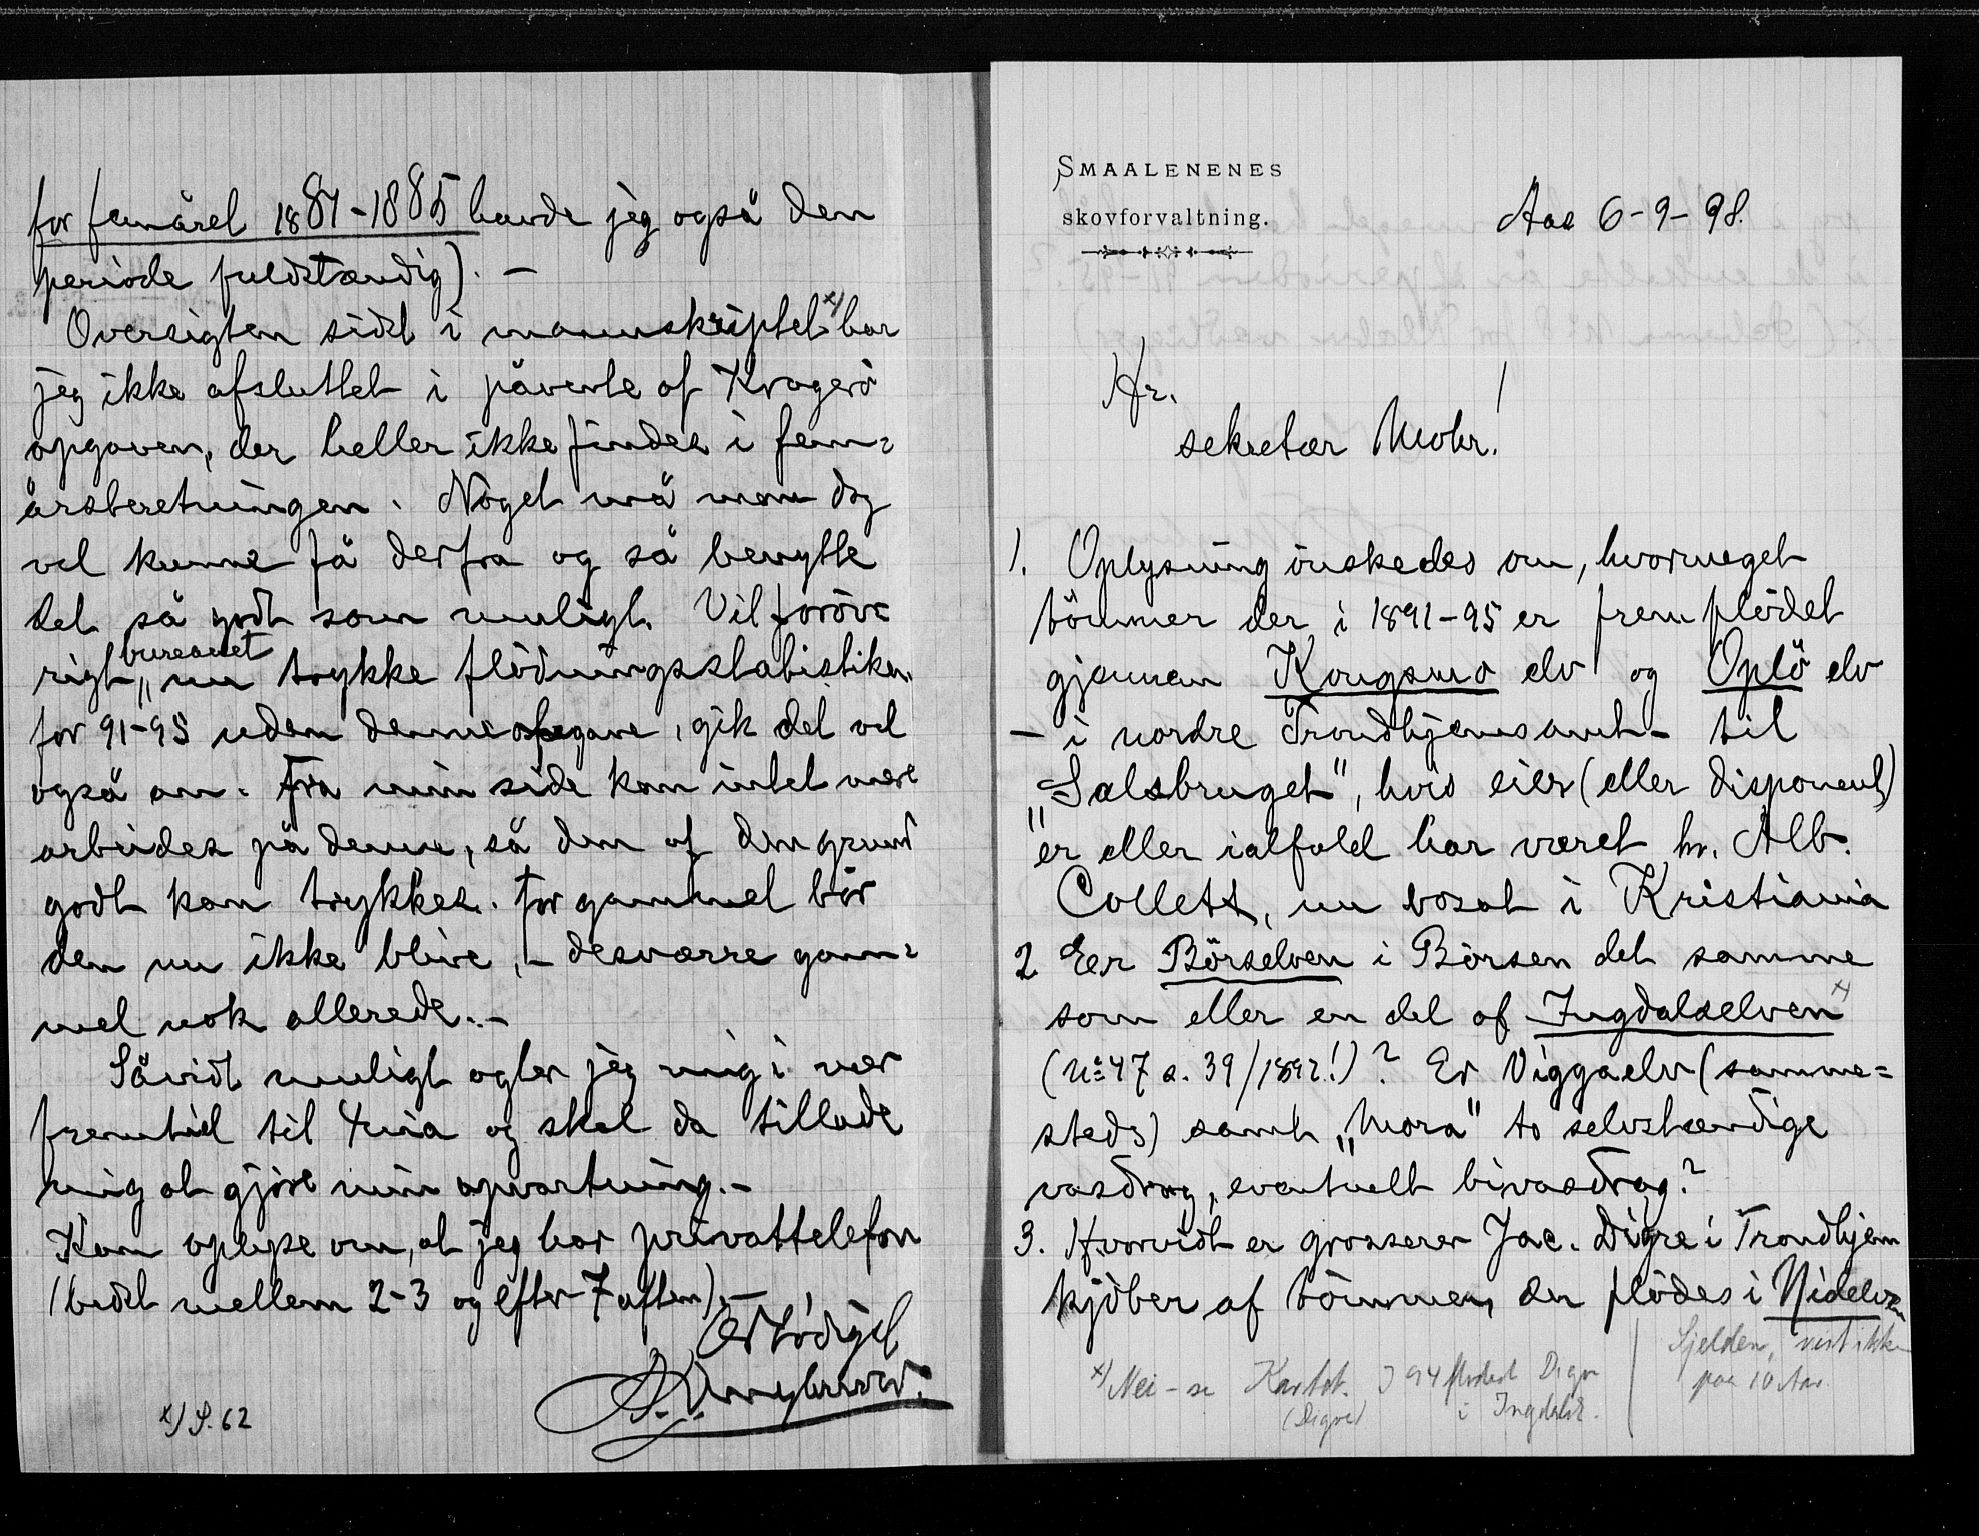 for femåret 1881-1885 havde jeg også den
periode fuldstændig). —
Oversigten sidst i manuskriptet x) har
jeg ikke afsluttet i påvente af Kragerö
opgaven, der heller ikke findes i fem=
årsberetningen. Noget må man dog
vel kunne få derfra og så benytte
det så godt som muligt. Vil foröv=
rigt bureauet nu trykke flödningsstatistiken
for 91-95 uden denne opgave, gik det vel
også an. Fra min side kan intet mere
arbeides på denne, så den af den grund
godt kan trykkes. For gammel bör
den nu ikke blive, – desværre gam=
mel nok allerede. –
Såvidt muligt agter jeg mig i nær
fremtid til Kria og skal da tillade
mig at gjöre min opvartning. –
Kan oplyse om, at jeg har privattelefon
(bedst mellem 2-3 og efter 7 aften). –
Ærbödigst
x) S. 62
SMAALENENES
skovforvaltning.
Aas 6-9-98.
Hr.
sekretær Mohr!
1. Oplysning önskedes om, hvormeget
tömmer der i 1891-95 er fremflödet
gjennem Kongsmo elv og Oplö elv
– i nordre Trondhjems amt – til
"Salsbruget", hvis eier (eller disponent)
er eller ialfald har været hr. Alb.
Collett, nu bosat i Kristiania
2 Eer Börselven i Börsen det samme
som eller en del af Ingdalselven x)
(No 47 s. 39/1892!)? Er Viggaelv (samme=
steds) samt "Mora" to selvstændige
vasdrag, eventuelt bivasdrag?
3. Hvorvidt er grosserer Jac. Digre i Trondhjem
kjöber af tömmer, der flödes i Nidelven
Sjelden, vist ikke
paa 10 Aar.
x) Nei – se Kartot. I 94 flödet Digre
(Digre) i Ingdalselv.